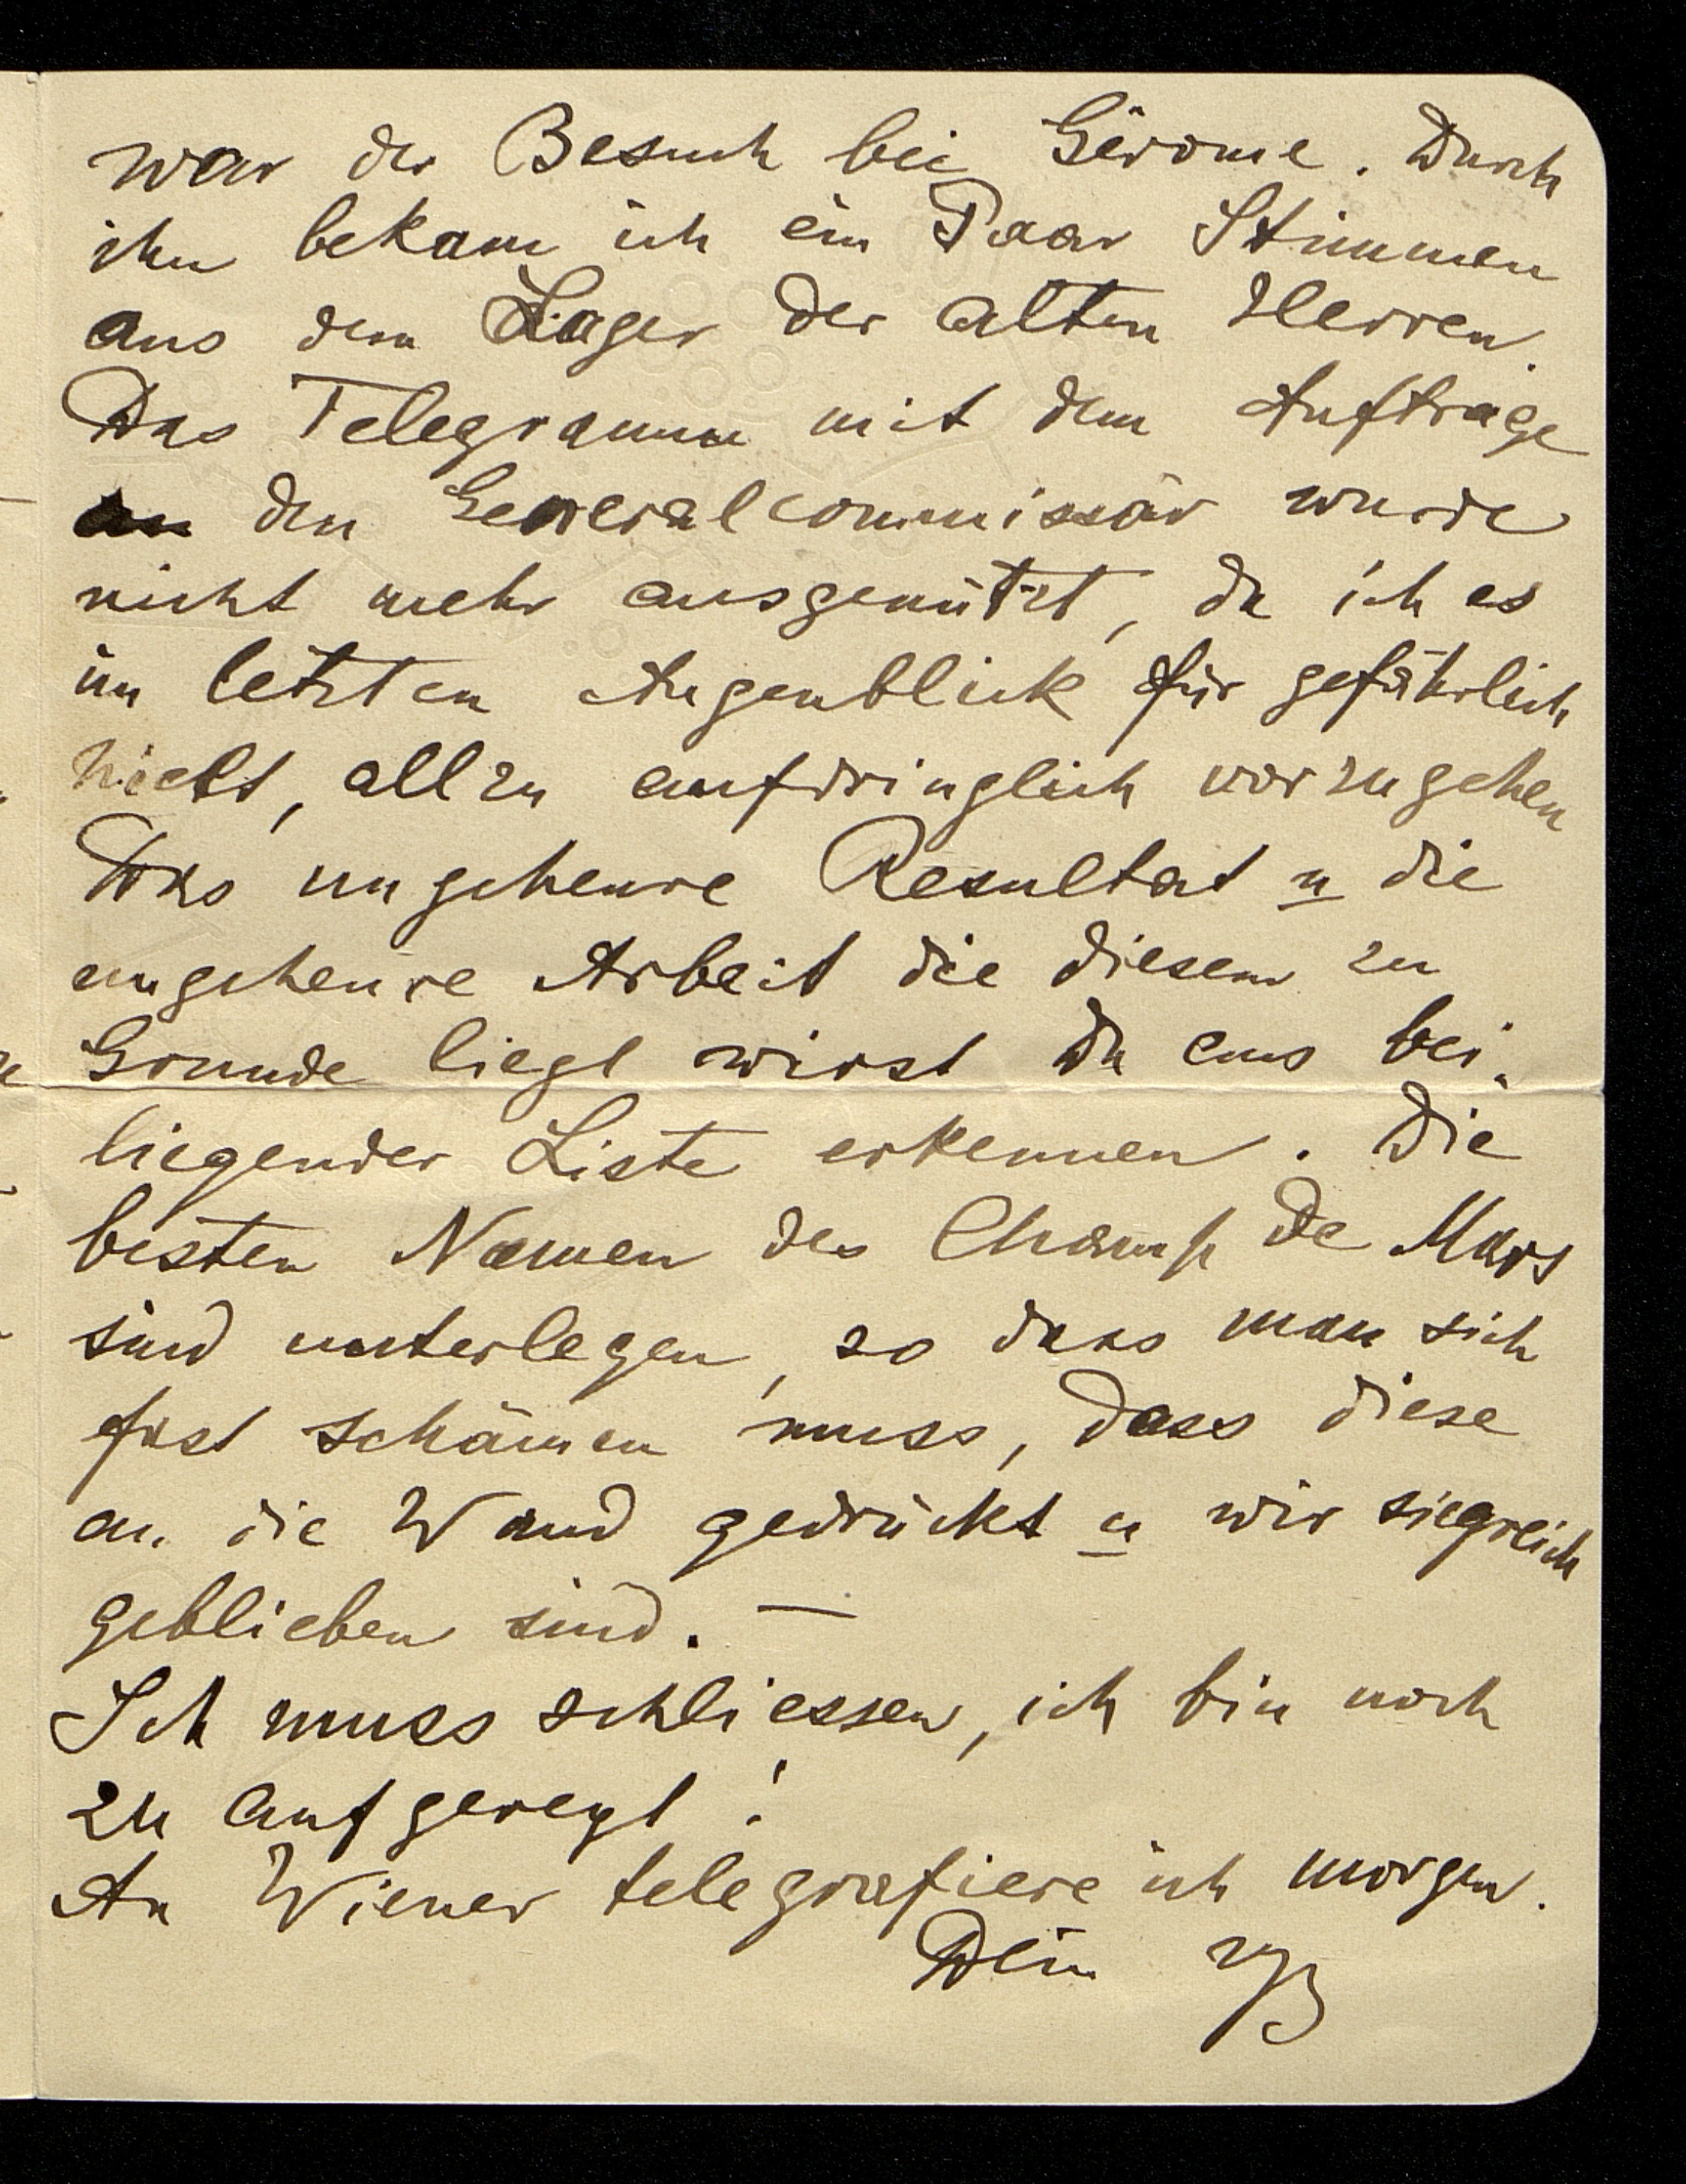 war der Besuch bei Gérome. Durch
ihn bekam ich ein Paar Stimmen
aus dem Lager der alten Herren.
Das Telegramm mit dem Auftrage
an den Generalcommissär wurde
nicht mehr ausgenützt, da ich es
im letzten Augenblick für gefährlich
hielt, allzu aufdringlich vorzugehen
Das ungeheure Resultat u die
ungeheure Arbeit die diesem zu
Grunde liegt wirst Du aus bei-
liegender Liste erkennen. Die
besten Namen des Champ de Mars
sind unterlegen, so dass man sich
fast schämen muss, dass diese
an die Wand gedrückt u wir siegreich
geblieben sind. —
Ich muss schliessen, ich bin noch
zu aufgeregt!
An Wiener telegrafiere ich morgen.
Dein